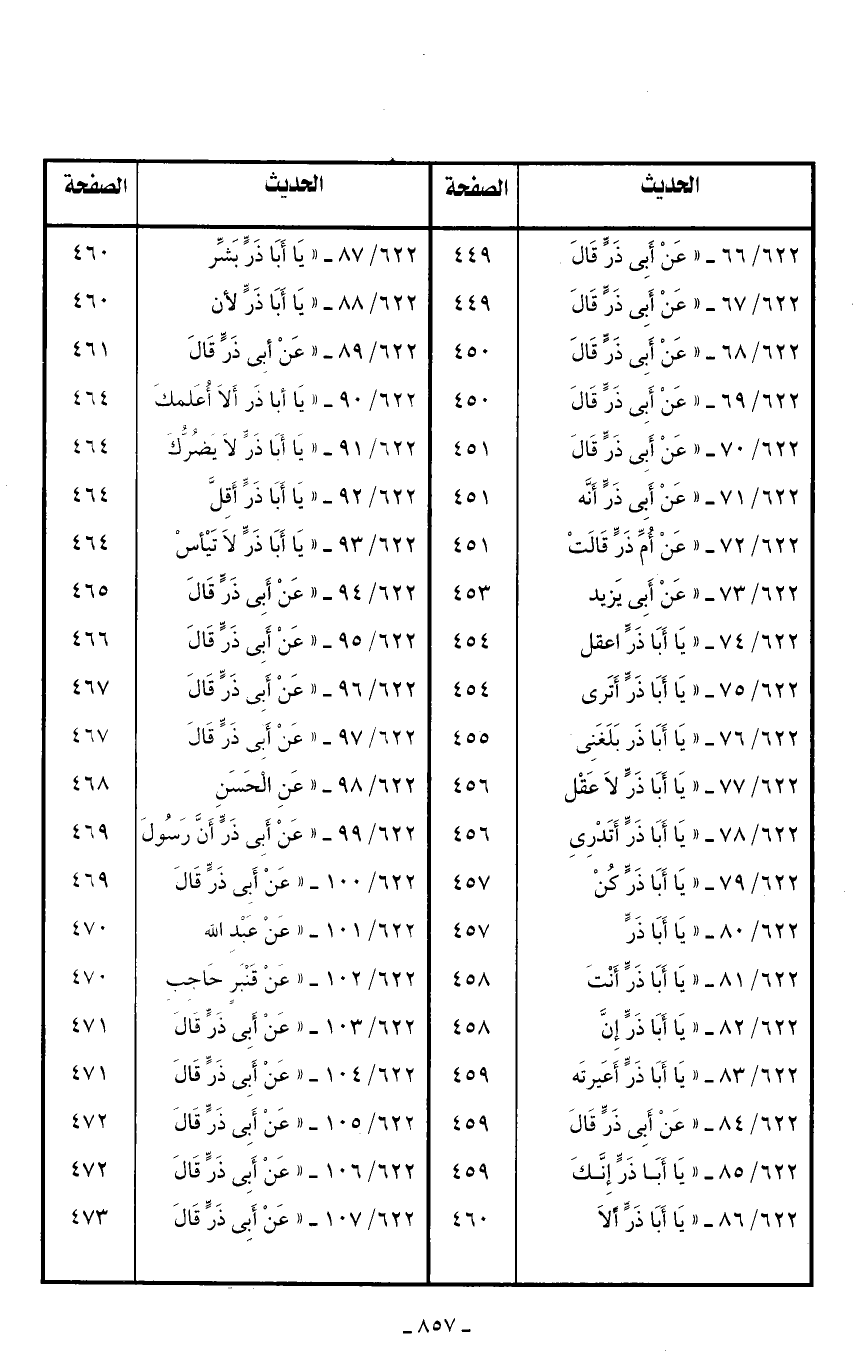 الحديث الصفحة الحديث الصفحة
٦٢٢/ ٦٦ ـ « عَنْ أَبِى ذَرٍّ قَالَ ٤٤٩ ٦٢٢/ ٨٧ ـ « يَا أَبَا ذَرٍّ بَشِّرِ ٤٦٠
٦٢٢/ ٦٧ ـ « عَنْ أَبِى ذَرٍّ قَالَ ٤٤٩ ٦٢٢/ ٨٨ ـ « يَا أَبَا ذَرٍّ لأن ٤٦٠
٦٢٢/ ٦٨ ـ « عَنْ أَبِى ذَرٍّ قَالَ ٤٥٠ ٦٢٢/ ٨٩ ـ « عَنْ أبِى ذَرٍّ قَالَ ٤٦١
٦٢٢/ ٦٩ ـ « عَنْ أَبِى ذَرٍّ قَالَ ٤٥٠ ٦٢٢/ ٩٠ ـ « يَا أبا ذَر ألاَ أُعَلمكَ ٤٦٤
٦٢٢/ ٧٠ ـ « عَنْ أَبِى ذَرٍّ قَالَ ٤٥١ ٦٢٢/ ٩١ ـ « يَا أَبَا ذَرٍّ لاَ يَضُرُّكَ ٤٦٤
٦٢٢/ ٧١ ـ « عَنْ أَبِى ذَرٍّ أَنَّه ٤٥١ ٦٢٢/ ٩٢ ـ « يَا أَبَا ذَرٍّ أَقِلَّ ٤٦٤
٦٢٢/ ٧٢ ـ « عَنْ أُمِّ ذَرٍّ قَالَتْ ٤٥١ ٦٢٢/ ٩٣ ـ « يَا أَبَا ذَرٍّ لاَ تَيْأسْ ٤٦٤
٦٢٢/ ٧٣ ـ « عَنْ أَبِى يَزِيد ٤٥٣ ٦٢٢/ ٩٤ ـ « عَنْ أَبِى ذَرٍّ قَالَ ٤٦٥
٦٢٢/ ٧٤ ـ « يَا أَبَا ذَرٍّ اعقل ٤٥٤ ٦٢٢/ ٩٥ ـ « عَنْ أَبِى ذَرٍّ قَالَ ٤٦٦
٦٢٢/ ٧٥ ـ « يَا أَبَا ذَرٍّ أَتَرى ٤٥٤ ٦٢٢/ ٩٦ ـ « عَنْ أَبِى ذَرٍّ قَالَ ٤٦٧
٦٢٢/ ٧٦ ـ « يَا أَبَا ذَر بَلَغَنِى ٤٥٥ ٦٢٢/ ٩٧ ـ « عَنْ أَبِى ذَرٍّ قَالَ ٤٦٧
٦٢٢/ ٧٧ ـ « يَا أَبَا ذَرٍّ لاَ عَقْل ٤٥٦ ٦٢٢/ ٩٨ ـ « عَنِ الْحَسَنِ ٤٦٨
٦٢٢/ ٧٨ ـ « يَا أَبَا ذَرٍّ أَتَدْرِى ٤٥٦ ٦٢٢/ ٩٩ ـ « عَنْ أَبِى ذَرٍّ أَنَّ رَسُولَ ٤٦٩
٦٢٢/ ٧٩ ـ « يَا أَبَا ذَرٍّ كُنْ ٤٥٧ ٦٢٢/ ١٠٠ ـ « عَنْ أَبِى ذَرٍّ قَالَ ٤٦٩
٦٢٢/ ٨٠ ـ « يَا أَبَا ذَرٍّ ٤٥٧ ٦٢٢/ ١٠١ ـ « عَنْ عَبْدِ الله ٤٧٠
٦٢٢/ ٨١ ـ « يَا أَبَا ذَرٍّ أَنْتَ ٤٥٨ ٦٢٢/ ١٠٢ ـ « عَنْ قَنْبَرٍ حَاجِبِ ٤٧٠
٦٢٢/ ٨٢ ـ « يَا أَبَا ذَرٍّ إِنَّ ٤٥٨ ٦٢٢/ ١٠٣ ـ « عَنْ أَبِى ذَرٍّ قَالَ ٤٧١
٦٢٢/ ٨٣ ـ « يَا أَبَا ذَرٍّ أَعَيرتَه ٤٥٩ ٦٢٢/ ١٠٤ ـ « عَنْ أَبِى ذَرٍّ قَالَ ٤٧١
٦٢٢/ ٨٤ ـ « عَنْ أَبِى ذَرٍّ قَالَ ٤٥٩ ٦٢٢/ ١٠٥ ـ « عَنْ أَبِى ذَرٍّ قَالَ ٤٧٢
٦٢٢/ ٨٥ ـ « يَا أَبَـا ذَرٍّ إِنَّـكَ ٤٥٩ ٦٢٢/ ١٠٦ ـ « عَنْ أَبِى ذَرٍّ قَالَ ٤٧٢
٦٢٢/ ٨٦ ـ « يَا أَبَا ذَرٍّ ألاَ ٤٦٠ ٦٢٢/ ١٠٧ ـ « عَنْ أَبِى ذَرٍّ قَالَ ٤٧٣
ـ ٨٥٧ ـ